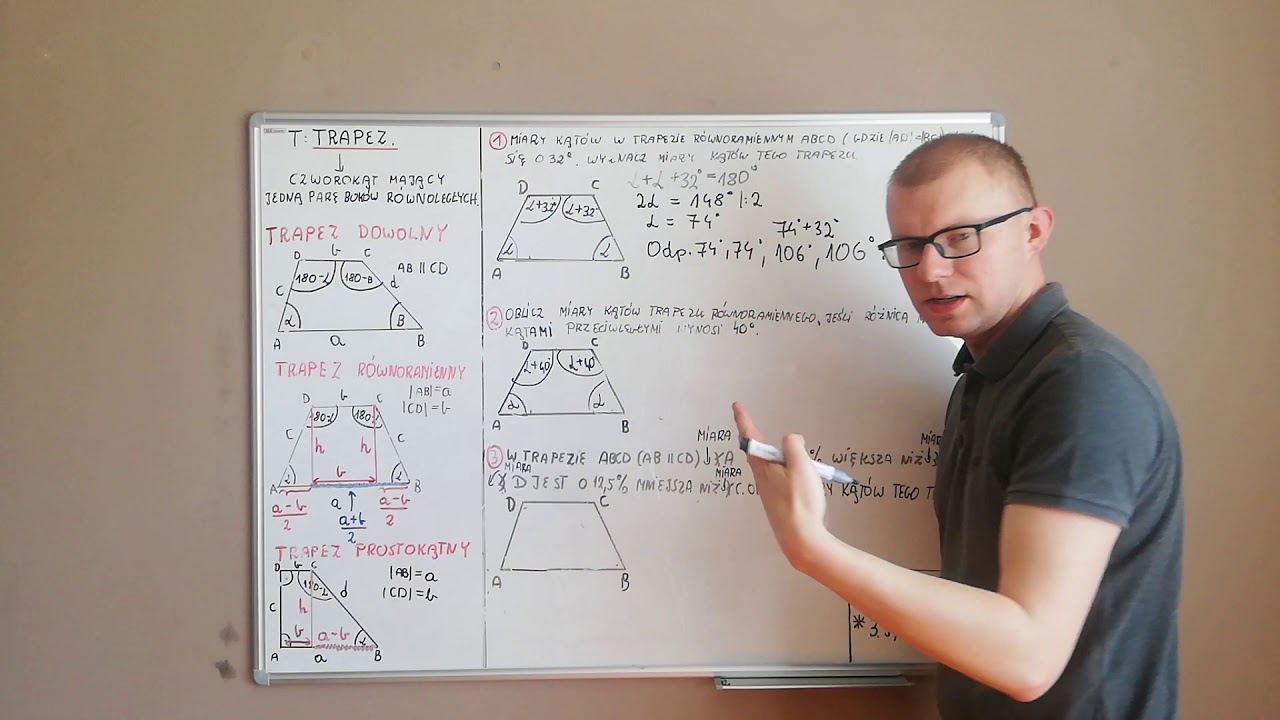 T: TRAPEZ.
CZWOROKĄT MAJĄCY
JEDNĄ PARĘ BOKÓW RÓWNOLEGŁYCH.
TRAPEZ DOWOLNY
b
D C
180-α 180-β AB || CD
c d
α β
A a B
TRAPEZ RÓWNORAMIENNY
|AB|=a
D b C |CD|=b
180-α 180-
c h h c
α b α
A B
a-b/2 a a-b/2
a+b/2
TRAPEZ PROSTOKĄTNY
D b C |AB|=a
180-α d |CD|=b
c h
b a-b α
A a B
① MIARY KĄTÓW W TRAPEZIE RÓWNORAMIENNYM ABCD (GDZIE |AD|=|BC|)
SIĘ O 32°. WYZNACZ MIARY KĄTÓW TEGO TRAPEZU.
D C
α+32° α+32°
α α
A B
α+α+32°=180°
2α = 148° |:2
α = 74° 74°+32°
Odp. 74°, 74°, 106°, 106°
② OBLICZ MIARY KĄTÓW TRAPEZU RÓWNORAMIENNEGO, JEŚLI RÓŻNICA
KĄTAMI PRZECIWLEGŁYMI WYNOSI 40°.
D C
α+40° α+40°
α α
A B
MIARA
③ W TRAPEZIE ABCD (AB || CD) ∢A % WIĘKSZA NIŻ
MIARA MIARA
∢D JEST O 12,5% MNIEJSZA NIŻ ∢C. KĄTÓW TEGO
D C
A B